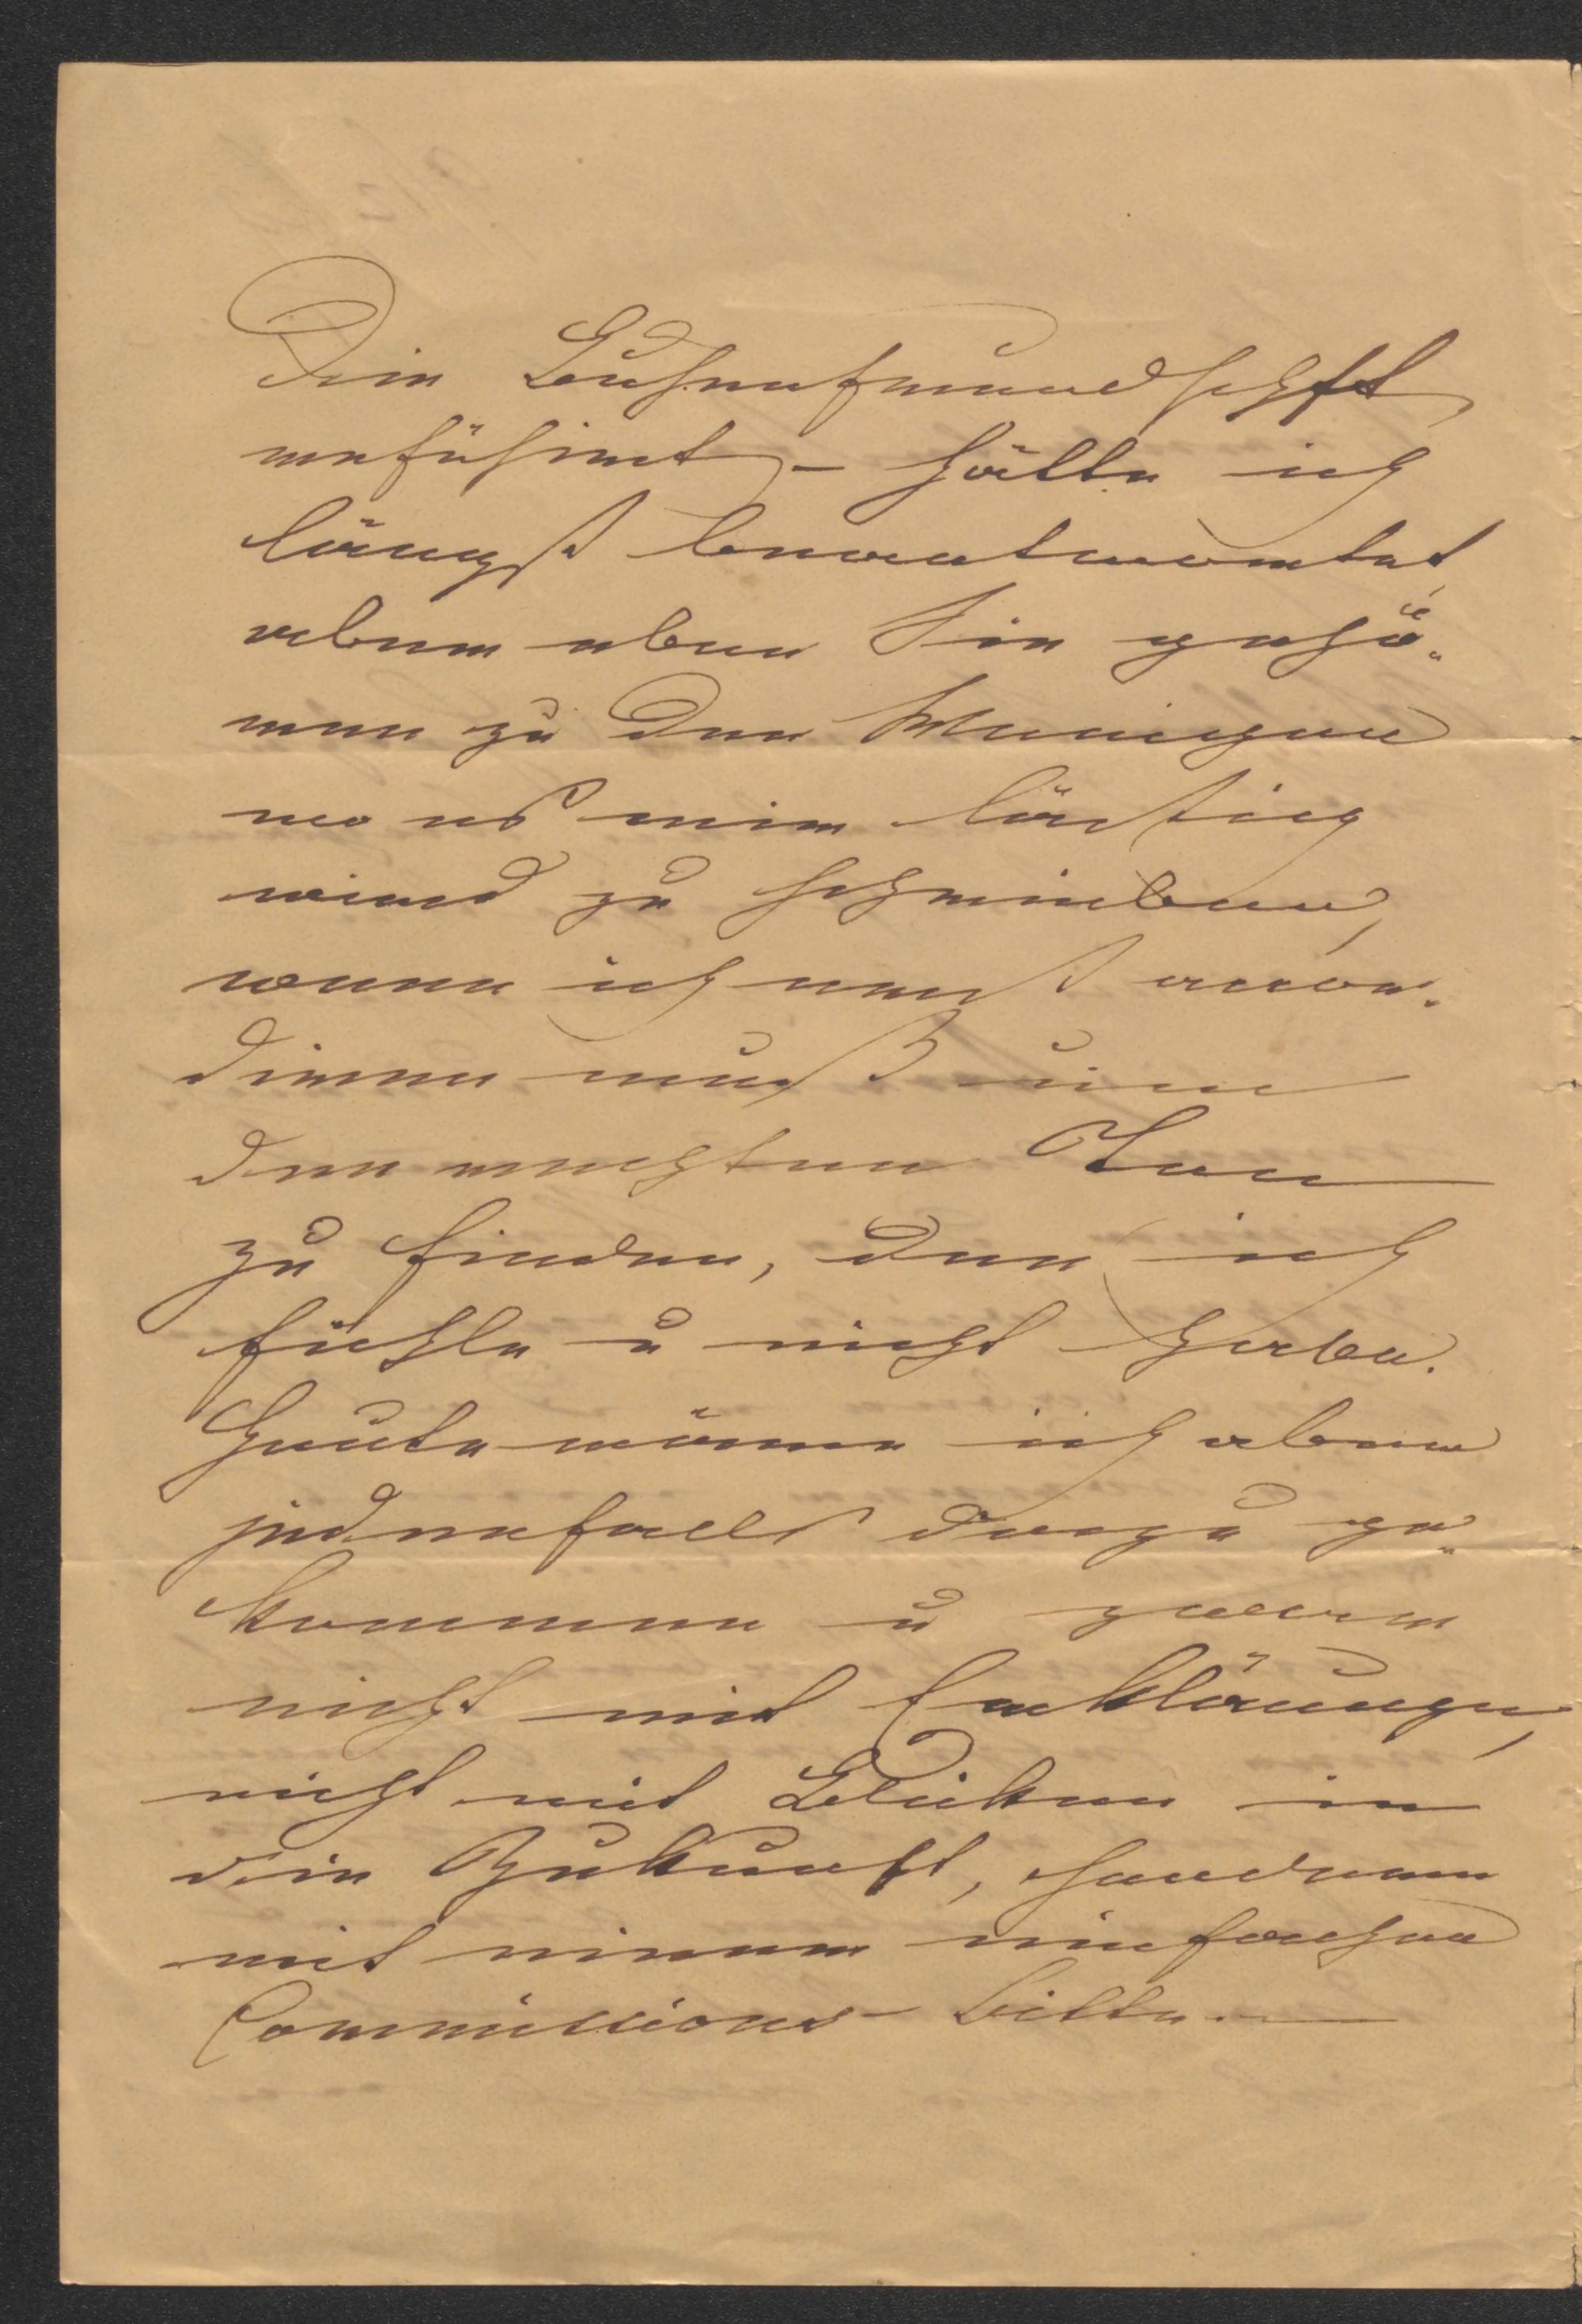 die Bühnenfreundschaft
erfrischt – hätte ich
längst beantwortet,
aber eben Sie gehö-
ren zu den Wenigen
wo es mir lästig
wird zu schreiben,
wenn ich erst
muß um
den rechten Ton
zu finden, den ich
fühle u nicht habe.
Heute wäre ich aber
jedenfalls dazu ge-
kommen u zwar
nicht mit Erklärungen,
nicht mit Blicken in
die Zukunft, sondern
mit einer einfachen
Commissions-bitte. —